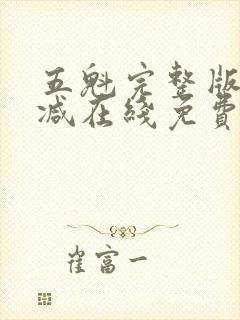 五魁完整版
减在綫免費
崔富一